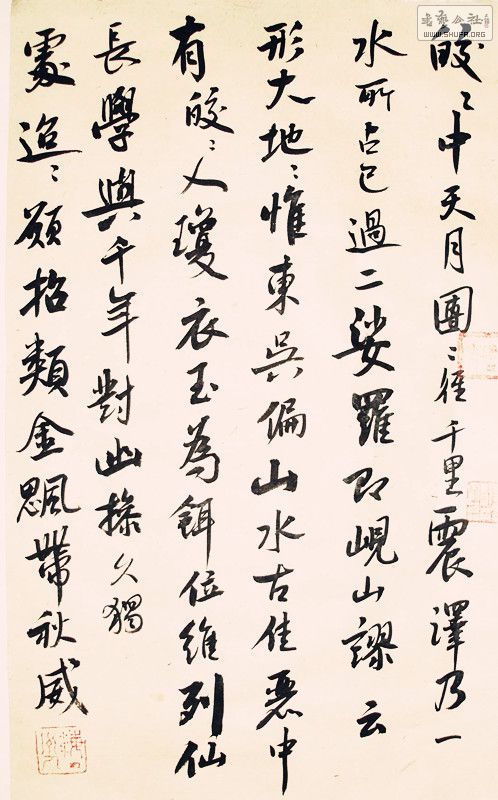 皎〻中天月團〻徑千里震澤乃一
水所占已過二娑羅即峴山謬云
形大地〻惟東吳偏山水古佳麗中
有皎〻人瓊衣玉為餌位維列仙
長學與千年對幽操久獨
處迢〻願招類金颸帶秋威
WWW.SHUFA.ORG